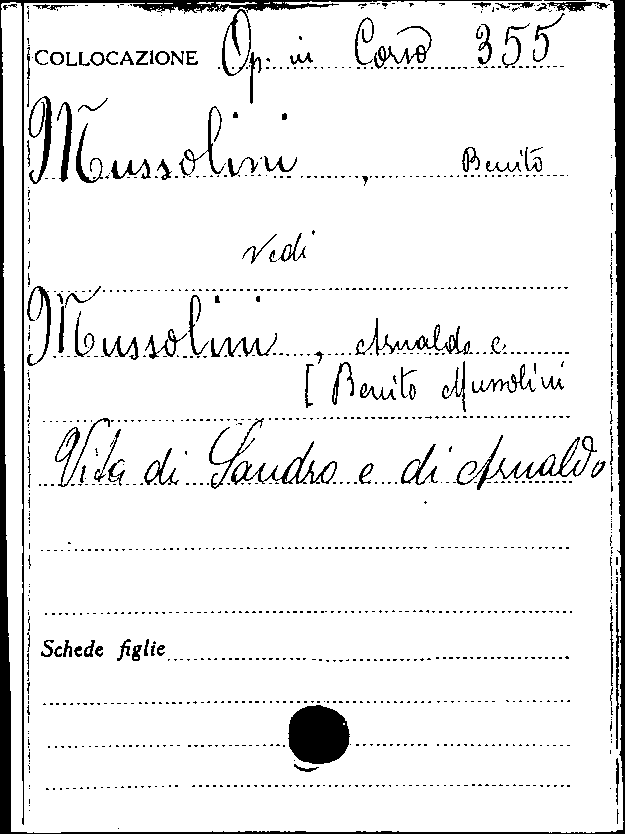 COLLOCAZIONE Op. in Corso 355
Mussolini , Benito
Vedi
Mussolini , Arnaldo e
[ Benito Mussolini
Vita di Sandro e di Arnaldo
Schede figlie